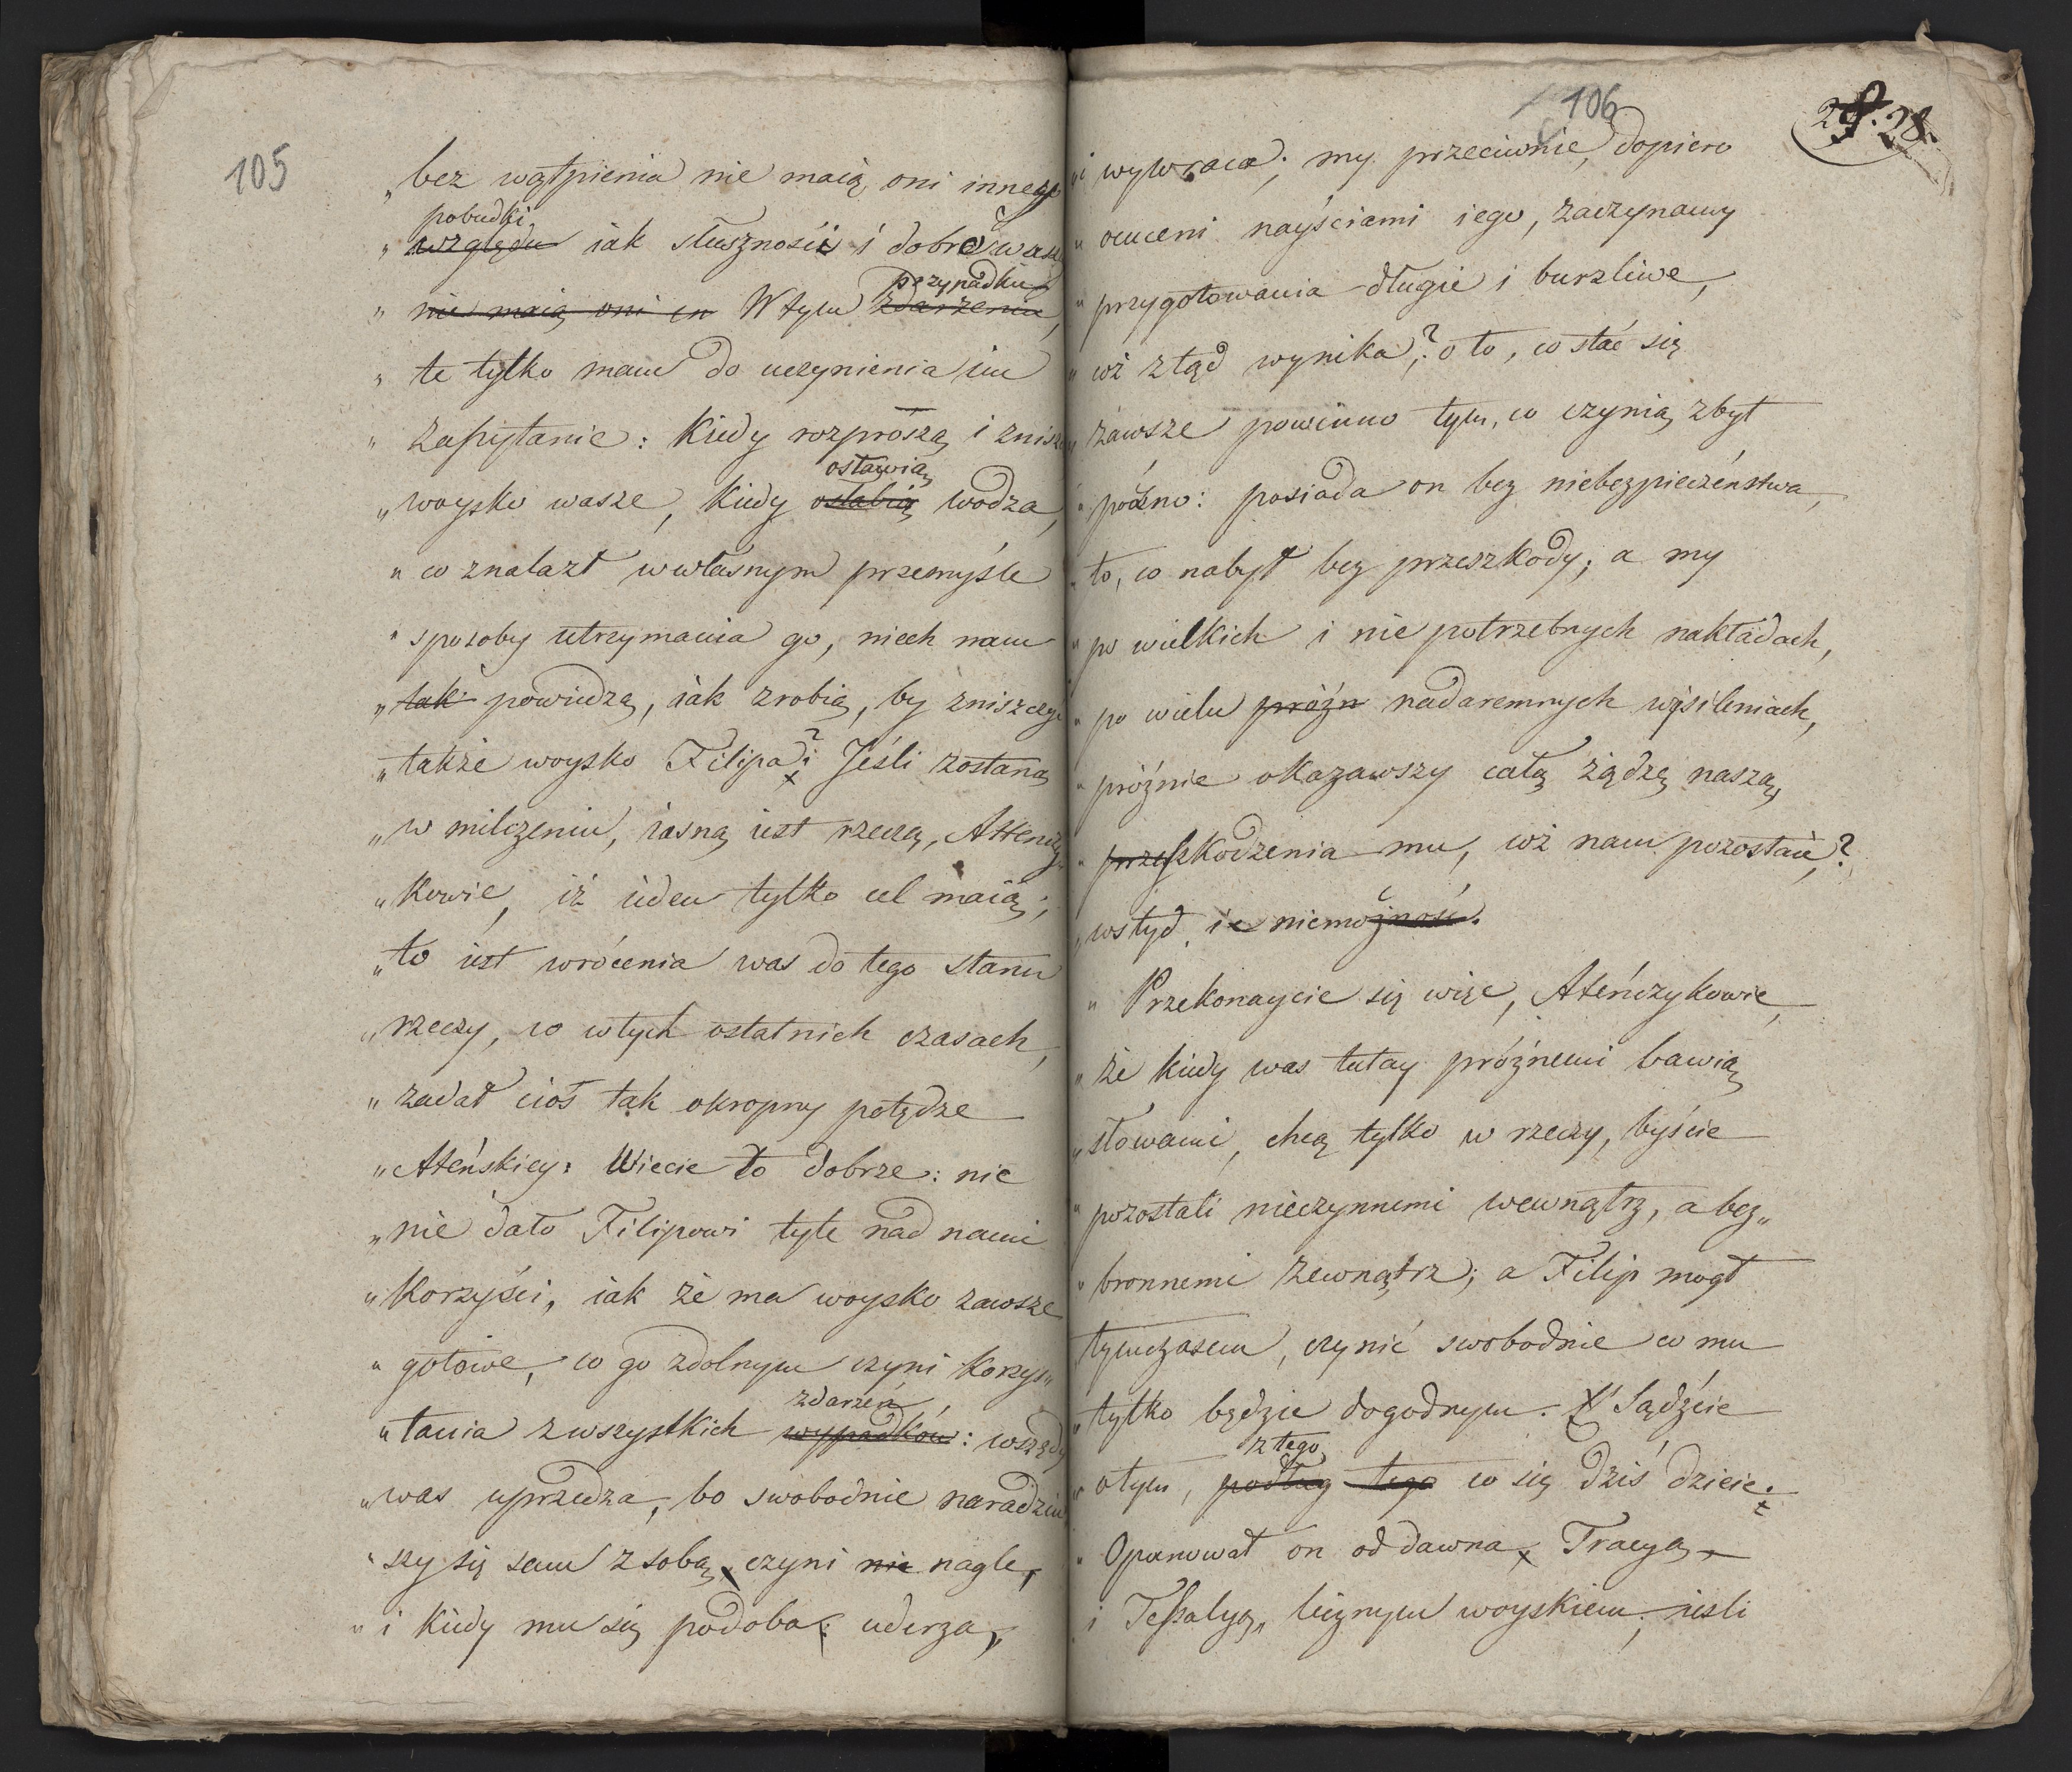 105
„bez wątpienia nie maią oni innego
pobudki
„względu iak słuszności i dobro wasze
przypadku
„nie maią oni in W tym zdarzeniu,
„te tylko mam do uczynienia im
„zapytanie: Kiedy rozproszą i zniszczą
ostawią
„woysko wasze, kiedy osłabią wodza,
„co znalazł w własnym przemyśle
„sposoby utrzymania go, niech nam
„tak powiedzą, iak zrobią, by zniszczyć
„także woysko Filipa? Jeśli zostaną
„w milczeniu, iasną iest rzeczą, Atteńczy-
„kowie, iż ieden tylko cel maią;
„to iest wrócenia was do tego stanu
„rzeczy, co w tych ostatnich czasach,
„zadał cios tak okropny potędze
„Ateńskiey: Wiecie to dobrze: nic
„nie dało Filipowi tyle nad nami
„Korzyści, iak że ma woysko zawsze
„gotowe, co go zdolnym czyni korzys„
zdarzeń,
„tania z wszystkich wypadków: wszędy
„was uprzedza, bo swobodnie naradziw
„szy się sam z sobą, czyni nie nagle,
„i kiedy mu się podoba: uderza,
106
29. 28.
„i wywraca; my przeciwnie, dopiero
„ocuceni nayściami iego, zaczynamy
„przygotowania długie i burzliwe,
„cóż ztąd wynika? oto, co stać się
„zawsze powinno tym, co czynią zbyt
„poźno: posiada on bez niebezpieczeństwa,
„to, co nabył bez przeszkody; a my
„po wielkich i nie potrzebnych nakładach,
„po wielu próżn nadaremnych wysileniach,
„próżnie okazawszy całą żądzę naszą,
„przeszkodzenia mu, cóż nam pozostaie?
„wstyd i niemożność.
„Przekonaycie się więc, Ateńczykowie,
„że kiedy was tutay próżnemi bawią
„słowami, chcą tylko w rzeczy, byście
„pozostali nieczynnemi wewnątrz, a bez„
„bronnemi zewnątrz; a Filip mogł
tymczasem, czynić swobodnie co mu
„tylko będzie dogodnym. Sądźcie
z tego
„o tym, podług tego co się dziś dzieie:
„Opanował on oddawna Tracyą
„i Tessalyą, licznym woyskiem; ieśli